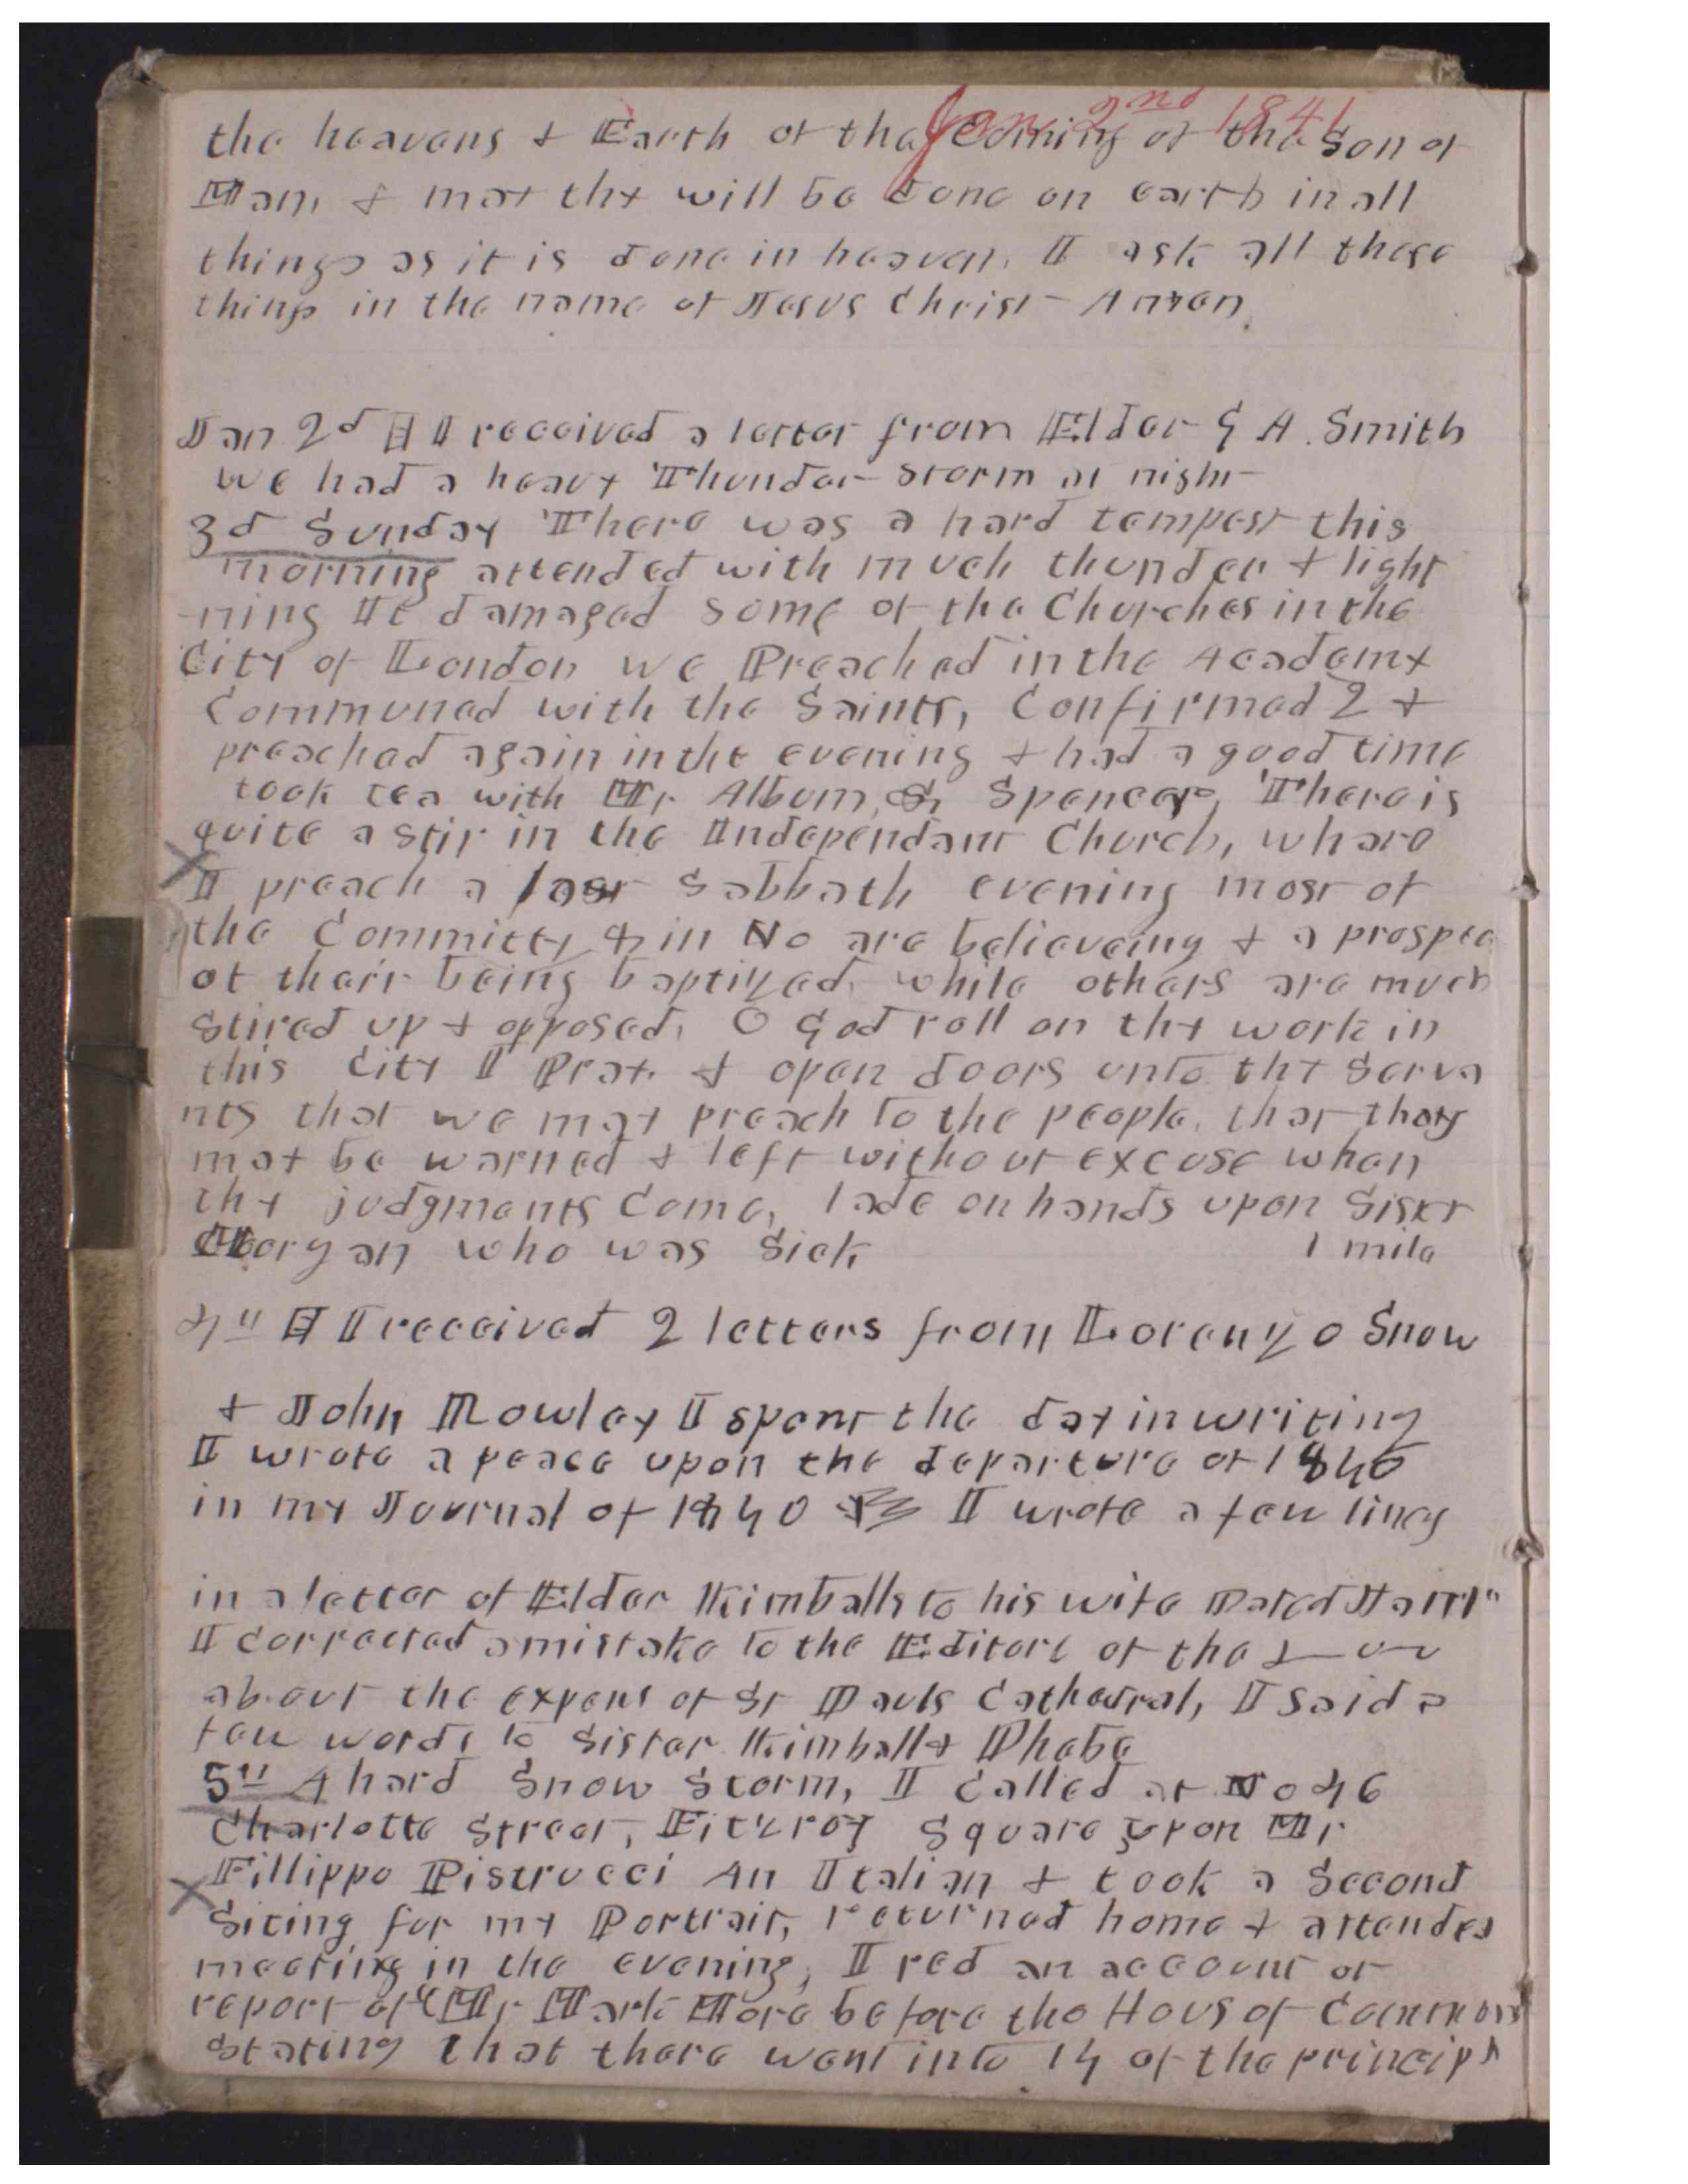 Jan 2nd 1841
the heavens & Earth of the coming of the Son of
Man, & may thy will be done on earth in all
things as it is done in heaven. I ask all these
things in the name of Jesus Christ Amen.
Jan 2d I received a letter from Elder G A. Smith
we had a heavy Thunder Storm at night
3d Sunday There was a hard tempest this
morning attended with much thunder & light
-ning It damaged some of the Churches in the
City of London we Preached in the Academy
Communed with the Saints, Confirmed 2 &
preached again in the evening & had a good time
took tea with Mr Album, & Spencer, There is
quite a stir in the Independant Church, whare
I preach a last Sabbath evening most of
the Committy in No are believeing & a prospec
of their being baptized, while others are much
stired up & opposed, O God roll on thy work in
this City I Pray. & open doors unto thy Serva
nts that we may preach to the people, that they
may be warned & left without excuse when
thy judgments come, lade on hands upon Sister
Morgan who was sick 1 mile
4th I received 2 letters from Lorenzo Snow
& John Rowley I spent the day in writing
I wrote a peace upon the departure of 1840
in my Journal of 1840 I wrote a few lines
in a letter of Elder Kimballs to his wife Dated
I corrected a mistake to the Editors of the
about the expens of St Pauls Cathedral, I said a
few words to Sister Kimball & Phebe
5th A hard Snow Storm, I called at No 46
Charlotte Street, Fitzroy Square upon Mr
Fillippo Pistrucci An Italian & took a Second
Siting for my Portrait, returned home & attended
meeting in the evening, I red an account or
report of Mr Mark More before the Hous of Commons
Stating that there went into 14 of the princip